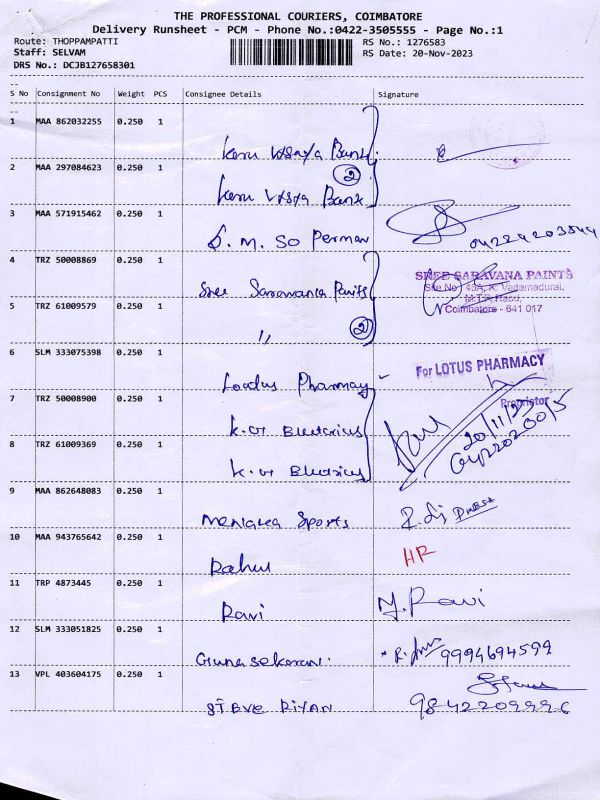 THE PROFESSIONAL COURIERS, COIMBATORE
Delivery Runsheet - PCM - Phone No.:0422-3505555 - Page No.:1
Route: THOPPAMPATTI RS No.: 1276583
Staff: SELVAM RS Date: 20-Nov-2023
DRS No.: DCJB127658301
S No Consignment No Weight PCS Consignee Details Signature
1 MAA 862032255 0.250 1
Karu Vysya Bank
2 MAA 297084623 0.250 1 2
Karu Vysya Bank
3 MAA 571915462 0.250 1
S. M. So Permar
4 TRZ 50008869 0.250 1
SREE SARAVANA PAINTS
Sree Saravana Paints Site No 45A, K. Vadamadurai,
M.T.P. Road,
5 TRZ 61009579 0.250 1 Coimbatore - 641 017
〃 2
6 SLM 333075398 0.250 1
For LOTUS PHARMACY
Loadus Pharmay
7 TRZ 50008900 0.250 1 Proprietor
K. or 20/11/23
8 TRZ 61009369 0.250 1
K. or
9 MAA 862648083 0.250 1
Sports
10 MAA 943765642 0.250 1
Rahul HR
11 TRP 4873445 0.250 1
Ravi M. Ravi
12 SLM 333051825 0.250 1
Gunasekaran. 9994694599
13 VPL 403604175 0.250 1
STEVE RIYAN 9842209996